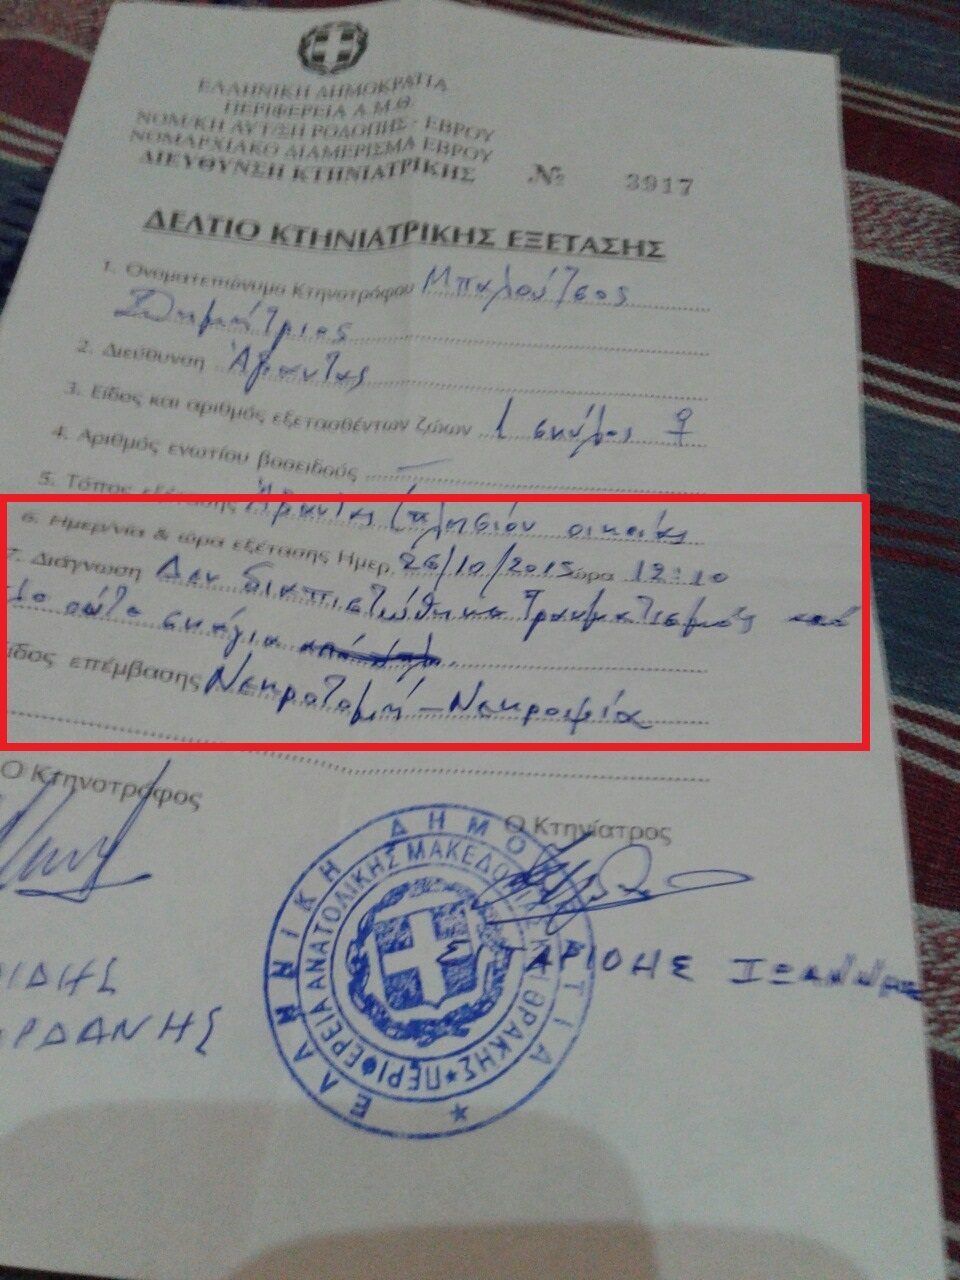 ΕΛΛΗΝΙΚΗ ΔΗΜΟΚΡΑΤΙΑ
ΠΕΡΙΦΕΡΕΙΑ Α.Μ.Θ.
ΝΟΜ/ΚΗ ΑΥΤ/ΣΗ ΡΟΔΟΠΗΣ - ΕΒΡΟΥ
ΝΟΜΑΡΧΙΑΚΟ ΔΙΑΜΕΡΙΣΜΑ ΕΒΡΟΥ
ΔΙΕΥΘΥΝΣΗ ΚΤΗΝΙΑΤΡΙΚΗΣ № 3917
ΔΕΛΤΙΟ ΚΤΗΝΙΑΤΡΙΚΗΣ ΕΞΕΤΑΣΗΣ
1. Ονοματεπώνυμο Κτηνοτρόφου Μπαλούτσος
Δημήτριος
2. Διεύθυνση
3. Είδος και αριθμός εξετασθέντων ζώων 1 σκύλος ♀
4. Αριθμός ενωτίου βοοειδούς —
5. Τόπος εξέτασης πλησίον οικίας
6. Ημερ/νία & ώρα εξέτασης Ημερ. /10/2015 ώρα 12:10
7. Διάγνωση Δεν διαπιστώθηκε τραυματισμός από
σκάγια
είδος επέμβασης Νεκροτομή - Νεκροψία
Ο Κτηνοτρόφος
Ο Κτηνίατρος
ΕΛΛΗΝΙΚΗ ΔΗΜΟΚΡΑΤΙΑ
ΠΕΡΙΦΕΡΕΙΑ ΑΝΑΤΟΛΙΚΗΣ ΜΑΚΕΔΟΝΙΑΣ ΚΑΙ ΘΡΑΚΗΣ